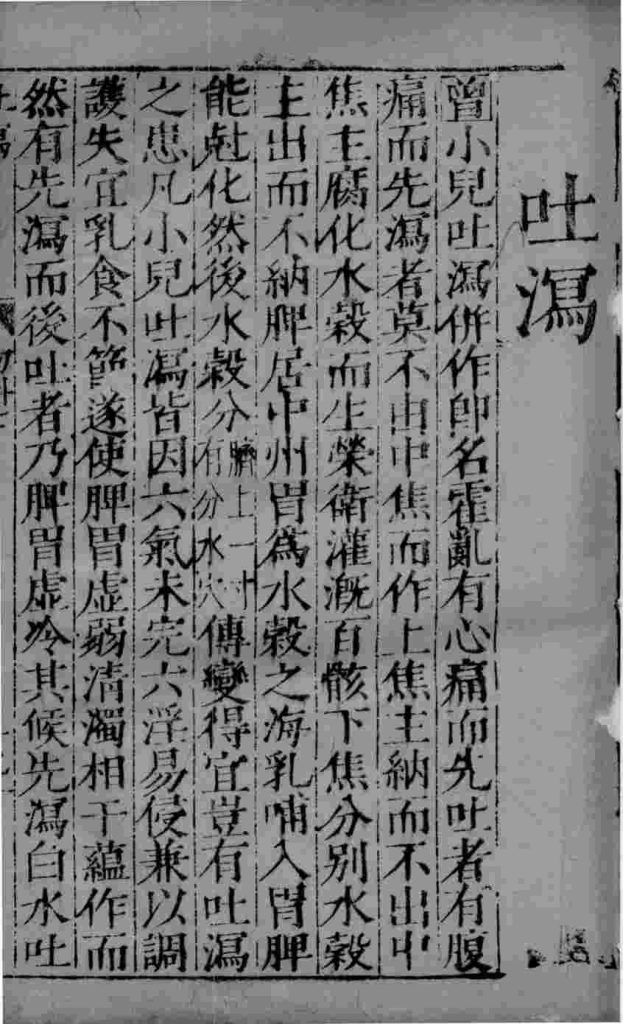 吐瀉
曾小兒吐瀉併作卽名霍亂有心痛而先吐者有腹
痛而先瀉者莫不由中焦而作上焦主納而不出中
焦主腐化水穀而生榮衛灌溉百骸下焦分別水穀
主出而不納脾居中州胃爲水穀之海乳哺入胃脾
能尅化然後水穀分臍上一寸有分水穴傳變得宜豈有吐瀉
之患凡小兒吐瀉皆因六氣未完六淫易侵兼以調
護失宜乳食不節遂使脾胃虛弱清濁相干蘊作而
然有先瀉而後吐者乃脾胃虛冷其候先瀉白水吐